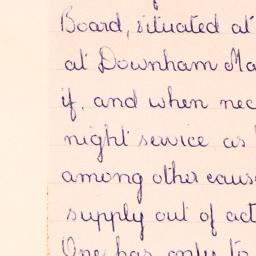 Board, situated at
at Downham Ma
if, and when nec
night service as
among other cause
supply out of act
One has only to